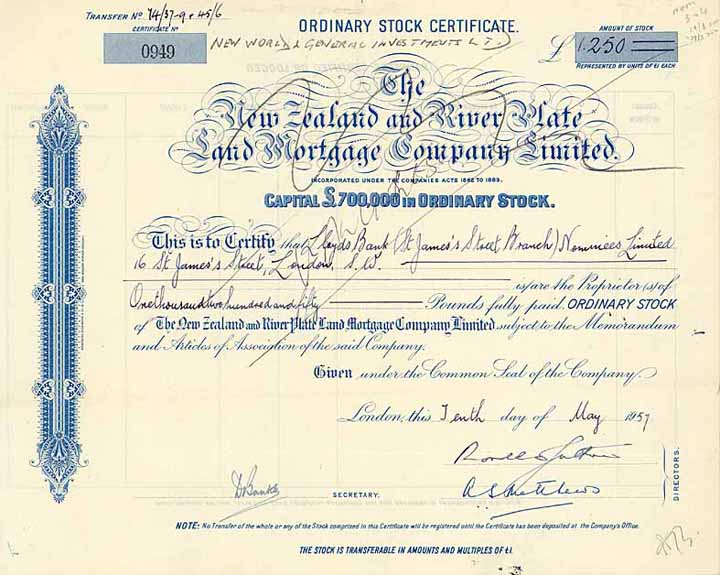 TRANSFER Nº 74/37-9 & 45/6
CERTIFICATE Nº
0949
ORDINARY STOCK CERTIFICATE.
NEW WORLD & GENERAL INVESTMENTS LTD
AMOUNT OF STOCK
£ 1,250
REPRESENTED BY UNITS OF £1 EACH
The
New Zealand and River Plate
Land Mortgage Company Limited.
INCORPORATED UNDER THE COMPANIES ACTS 1862 TO 1883.
CAPITAL £700,000 IN ORDINARY STOCK.
This is to Certify that Lloyds Bank (St James's Street Branch) Nominees Limited
16 St James's Street, London, S.W.
is/are the Proprietor(s) of
One thousand two hundred and fifty Pounds fully paid ORDINARY STOCK
of The New Zealand and River Plate Land Mortgage Company Limited subject to the Memorandum
and Articles of Association of the said Company.
Given under the Common Seal of the Company.
London, this Tenth day of May 1957
DIRECTORS.
A S Matthews
SECRETARY.
NOTE: No Transfer of the whole or any of the Stock comprised in this Certificate will be registered until the Certificate has been deposited at the Company's Office.
THE STOCK IS TRANSFERABLE IN AMOUNTS AND MULTIPLES OF £1.